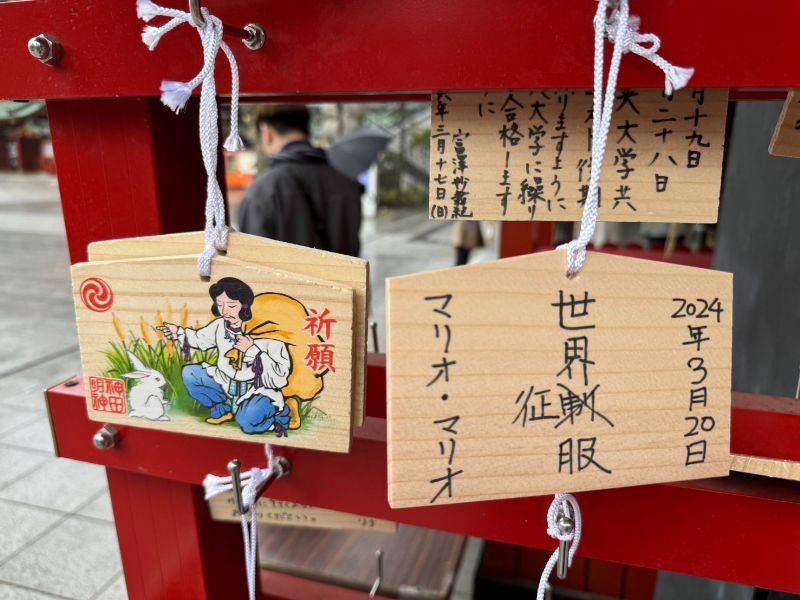 月十九日
二十八日
央大学共
後期
りますように
大学に繰り
合格します
に
年三月十七日(日)
祈願
神田
明神
2024年3月20日
世界征服
マリオ・マリオ